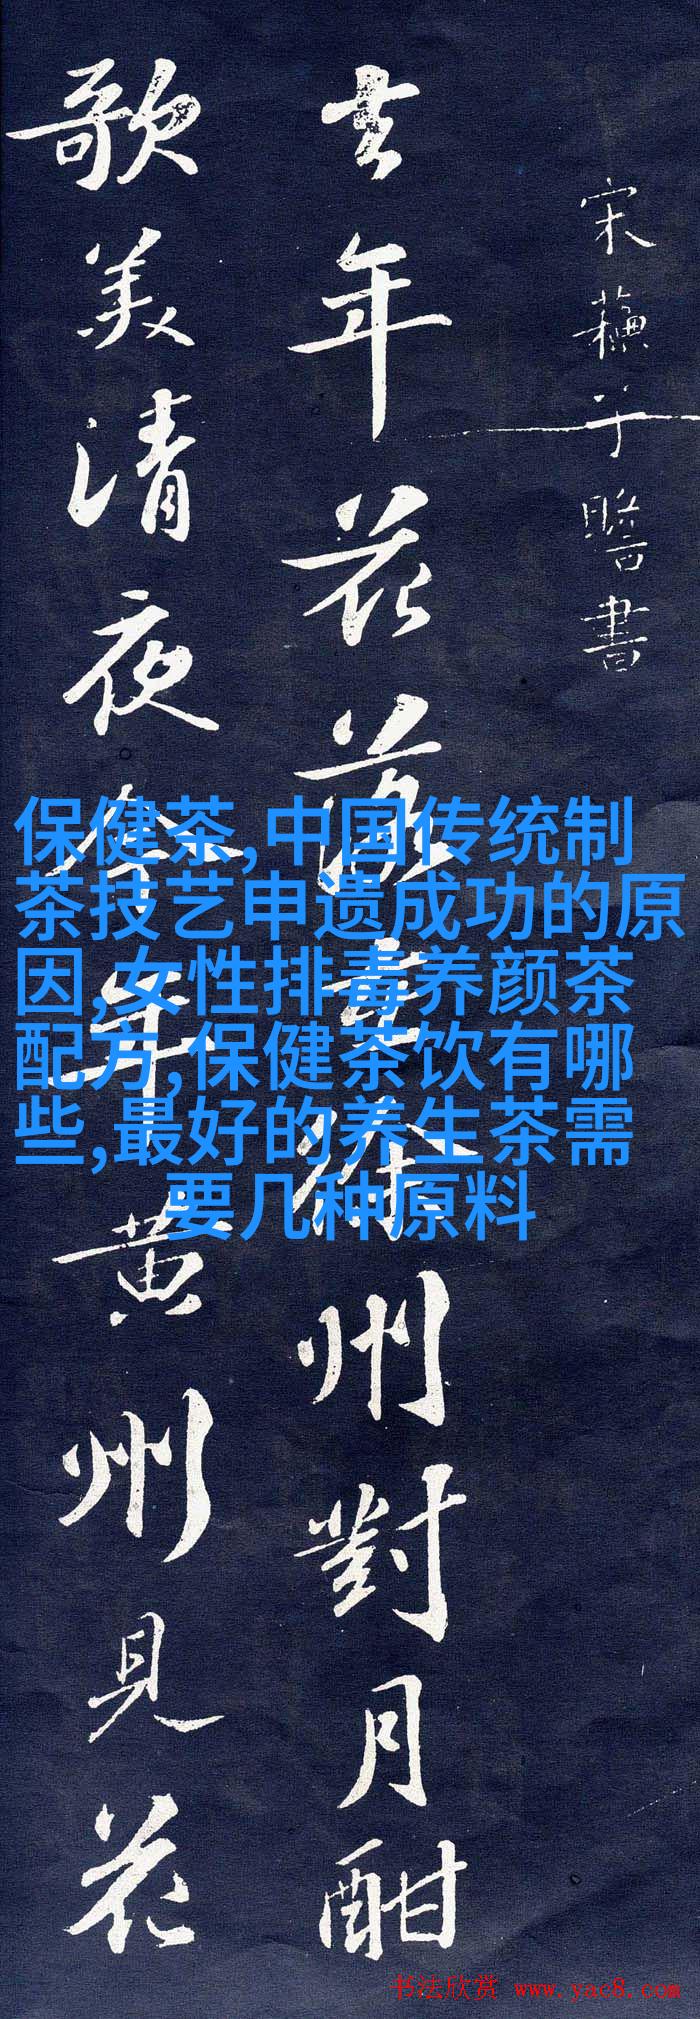 宋蘇子瞻書
去年花落在徐州對月酣
歌美清夜今年黄州見花
保健茶,中国传统制
茶技艺申遗成功的原
因,女性排毒养颜茶
配方,保健茶饮有哪
些,最好的养生茶需
要几种原料
书法欣赏 www.yac8.com